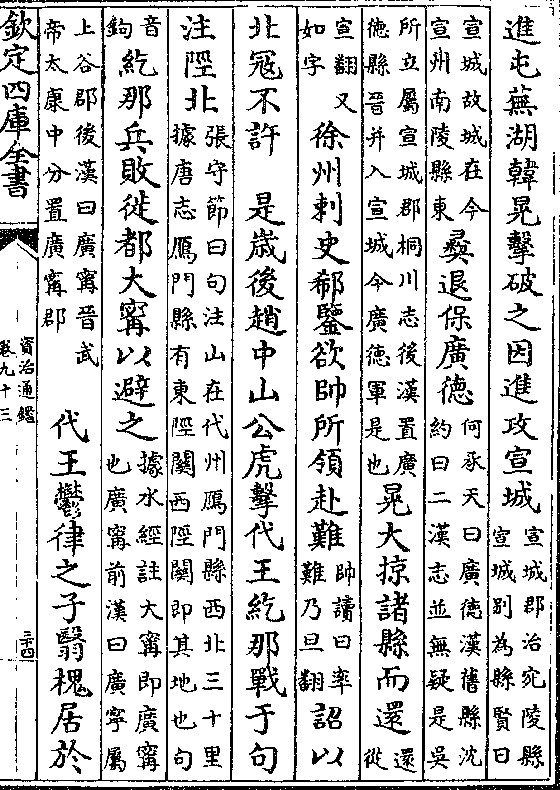 進屯蕪湖韓晃擊破之因進攻宣城宣城郡治宛陵縣宣城别為縣賢曰
宣城故城在今宣州南陵縣東彜退保廣德何承天曰廣德漢舊縣沈約曰二漢志並無疑是吳
所立屬宣城郡桐川志後漢置廣德縣晉并入宣城今廣德軍是也晃大掠諸縣而還還從
宣翻又如字徐州刺史郗鑒欲帥所領赴難帥讀曰率難乃旦翻詔以
北冦不許　是歳後趙中山公虎擊代王紇那戰于句
注陘北張守節曰句注山在代州鴈門縣西北三十里據唐志鴈門縣有東陘關西陘關即其地也句
音鉤紇那兵敗徙都大甯以避之據水經註大甯即廣甯也廣甯前漢曰廣寧屬
上谷郡後漢曰廣甯晉武帝太康中分置廣甯郡　代王鬱律之子翳槐居於
欽定四庫全書
資治通鑑
卷九十三
三十四